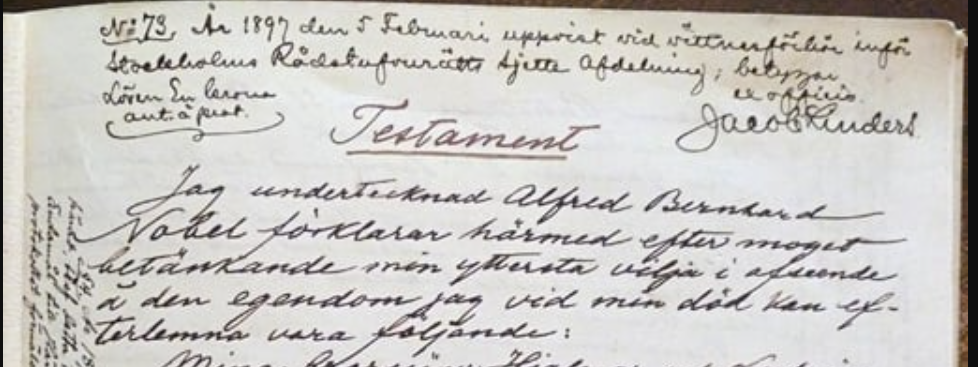 No 73. År 1897 den 5 Februari uppvist vid vittnesförhör inför
Stockholms Rådstufvurätts sjette Afdelning; betygar
Lösen En krona
ex officio.
ant. å prot.
Jacob Linders.
Testament
Jag undertecknad Alfred Bernhard
Nobel förklarar härmed efter moget
betänkande min yttersta vilja i afseende
å den egendom jag vid min död kan ef-
terlemna vara följande:
Mina